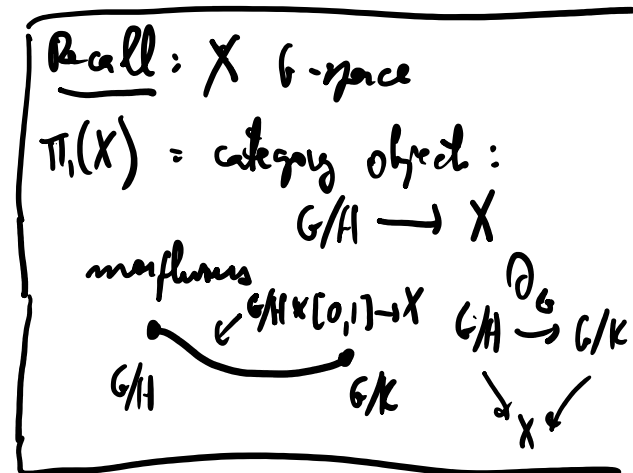 Recall: X G-space
π₁(X) = category object:
G/H → X
morphisms
G/H×[0,1]→X
O_G
G/H → G/K
G/H G/K
X